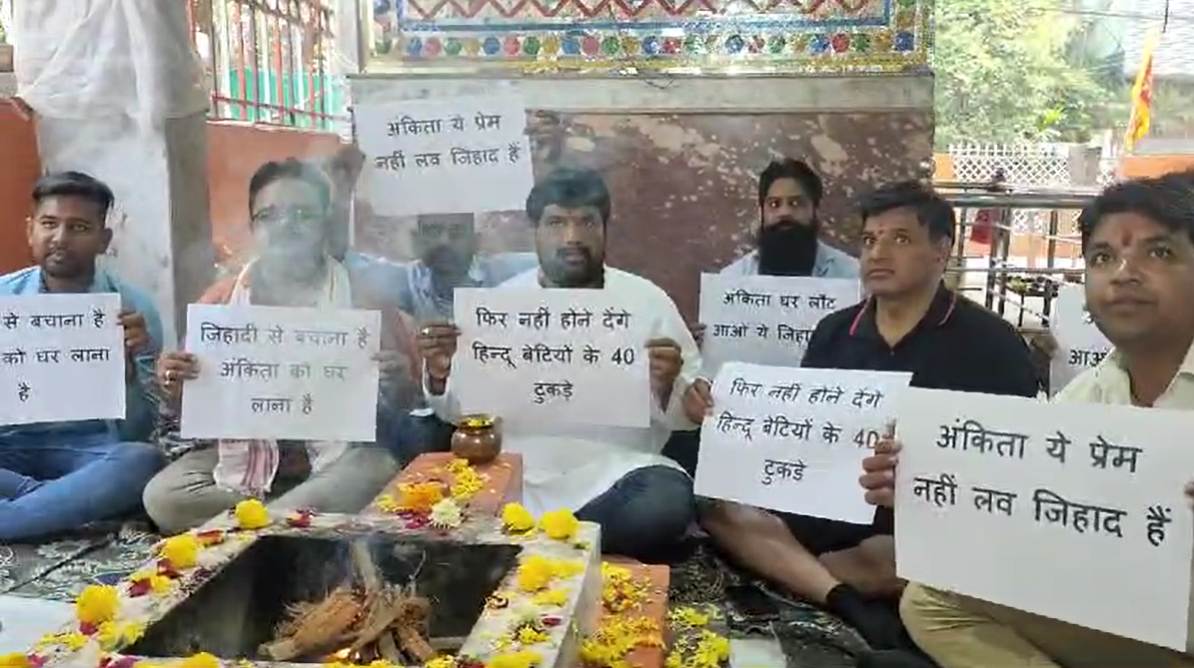 अंकिता ये प्रेम
नहीं लव जिहाद हैं
से बचाना है
को घर लाना
है
जिहादी से बचाना है
अंकिता को घर
लाना है
फिर नहीं होने देंगे
हिन्दू बेटियों के 40
टुकड़े
अंकिता घर लौट
आओ ये
फिर नहीं होने देंगे
हिन्दू बेटियों के 40
टुकड़े
अंकिता ये प्रेम
नहीं लव जिहाद हैं